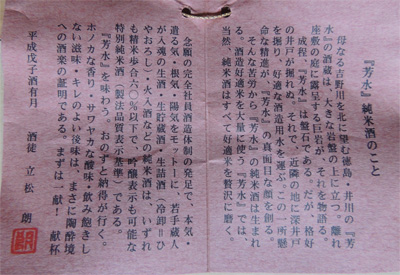 『芳水』純米酒のこと
母なる吉野川を北に望む徳島・井川の『芳
水』の酒蔵は、大きな岩盤の上に立つ。離れ
座敷の庭に露呈する巨岩が、それを物語る。
成程、『芳水』は盤石である。だが、格好
の井戸が掘れぬ。それで近隣の地に深井戸
を掘り、好適な酒造用水を運ぶ。この一所懸
命な精進が、『芳水』の真面目な顔を創る。
そんな苦労から『芳水』の純米酒は生まれ
る。酒造好適米を大量に使う『芳水』では、
当然、純米酒はすべて好適米を贅沢に磨く。
念願の完全社員酒造体制の発足で、本気・
造る気・根気、陽気をモットーに、若手蔵人
が入魂の生酒・生貯蔵酒・生詰酒（冷卸＝ひ
やおろし）・火入酒などの純米酒は、いずれ
も精米歩合六〇％以下で、吟醸表示も可能な
特別純米酒（製法品質表示基準）である。
『芳水』を味わう。おのずと納得が行く。
ホノカな香り・サワヤカな酸味・飲み飽きし
ない滋味・キレのよい後味は、まさに陶酔境
への酒楽の証明である。まずは一献！献杯
平成戊子酒有月　酒徒　立松　朗